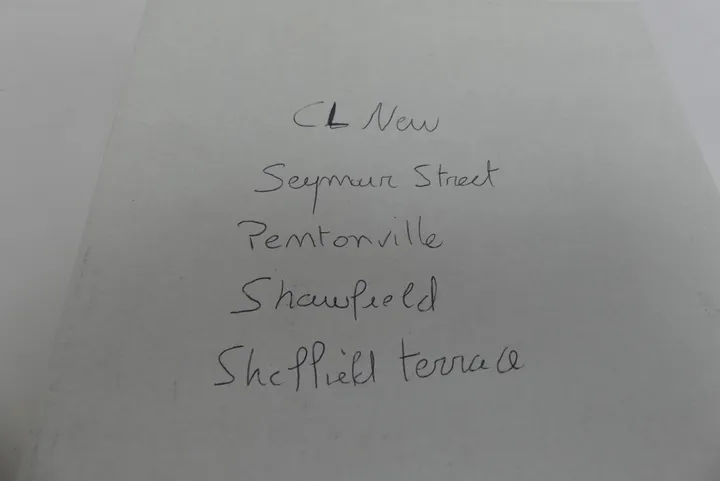 CL New
Seymur Street
Pentonville
Shawfield
Sheffield terrace